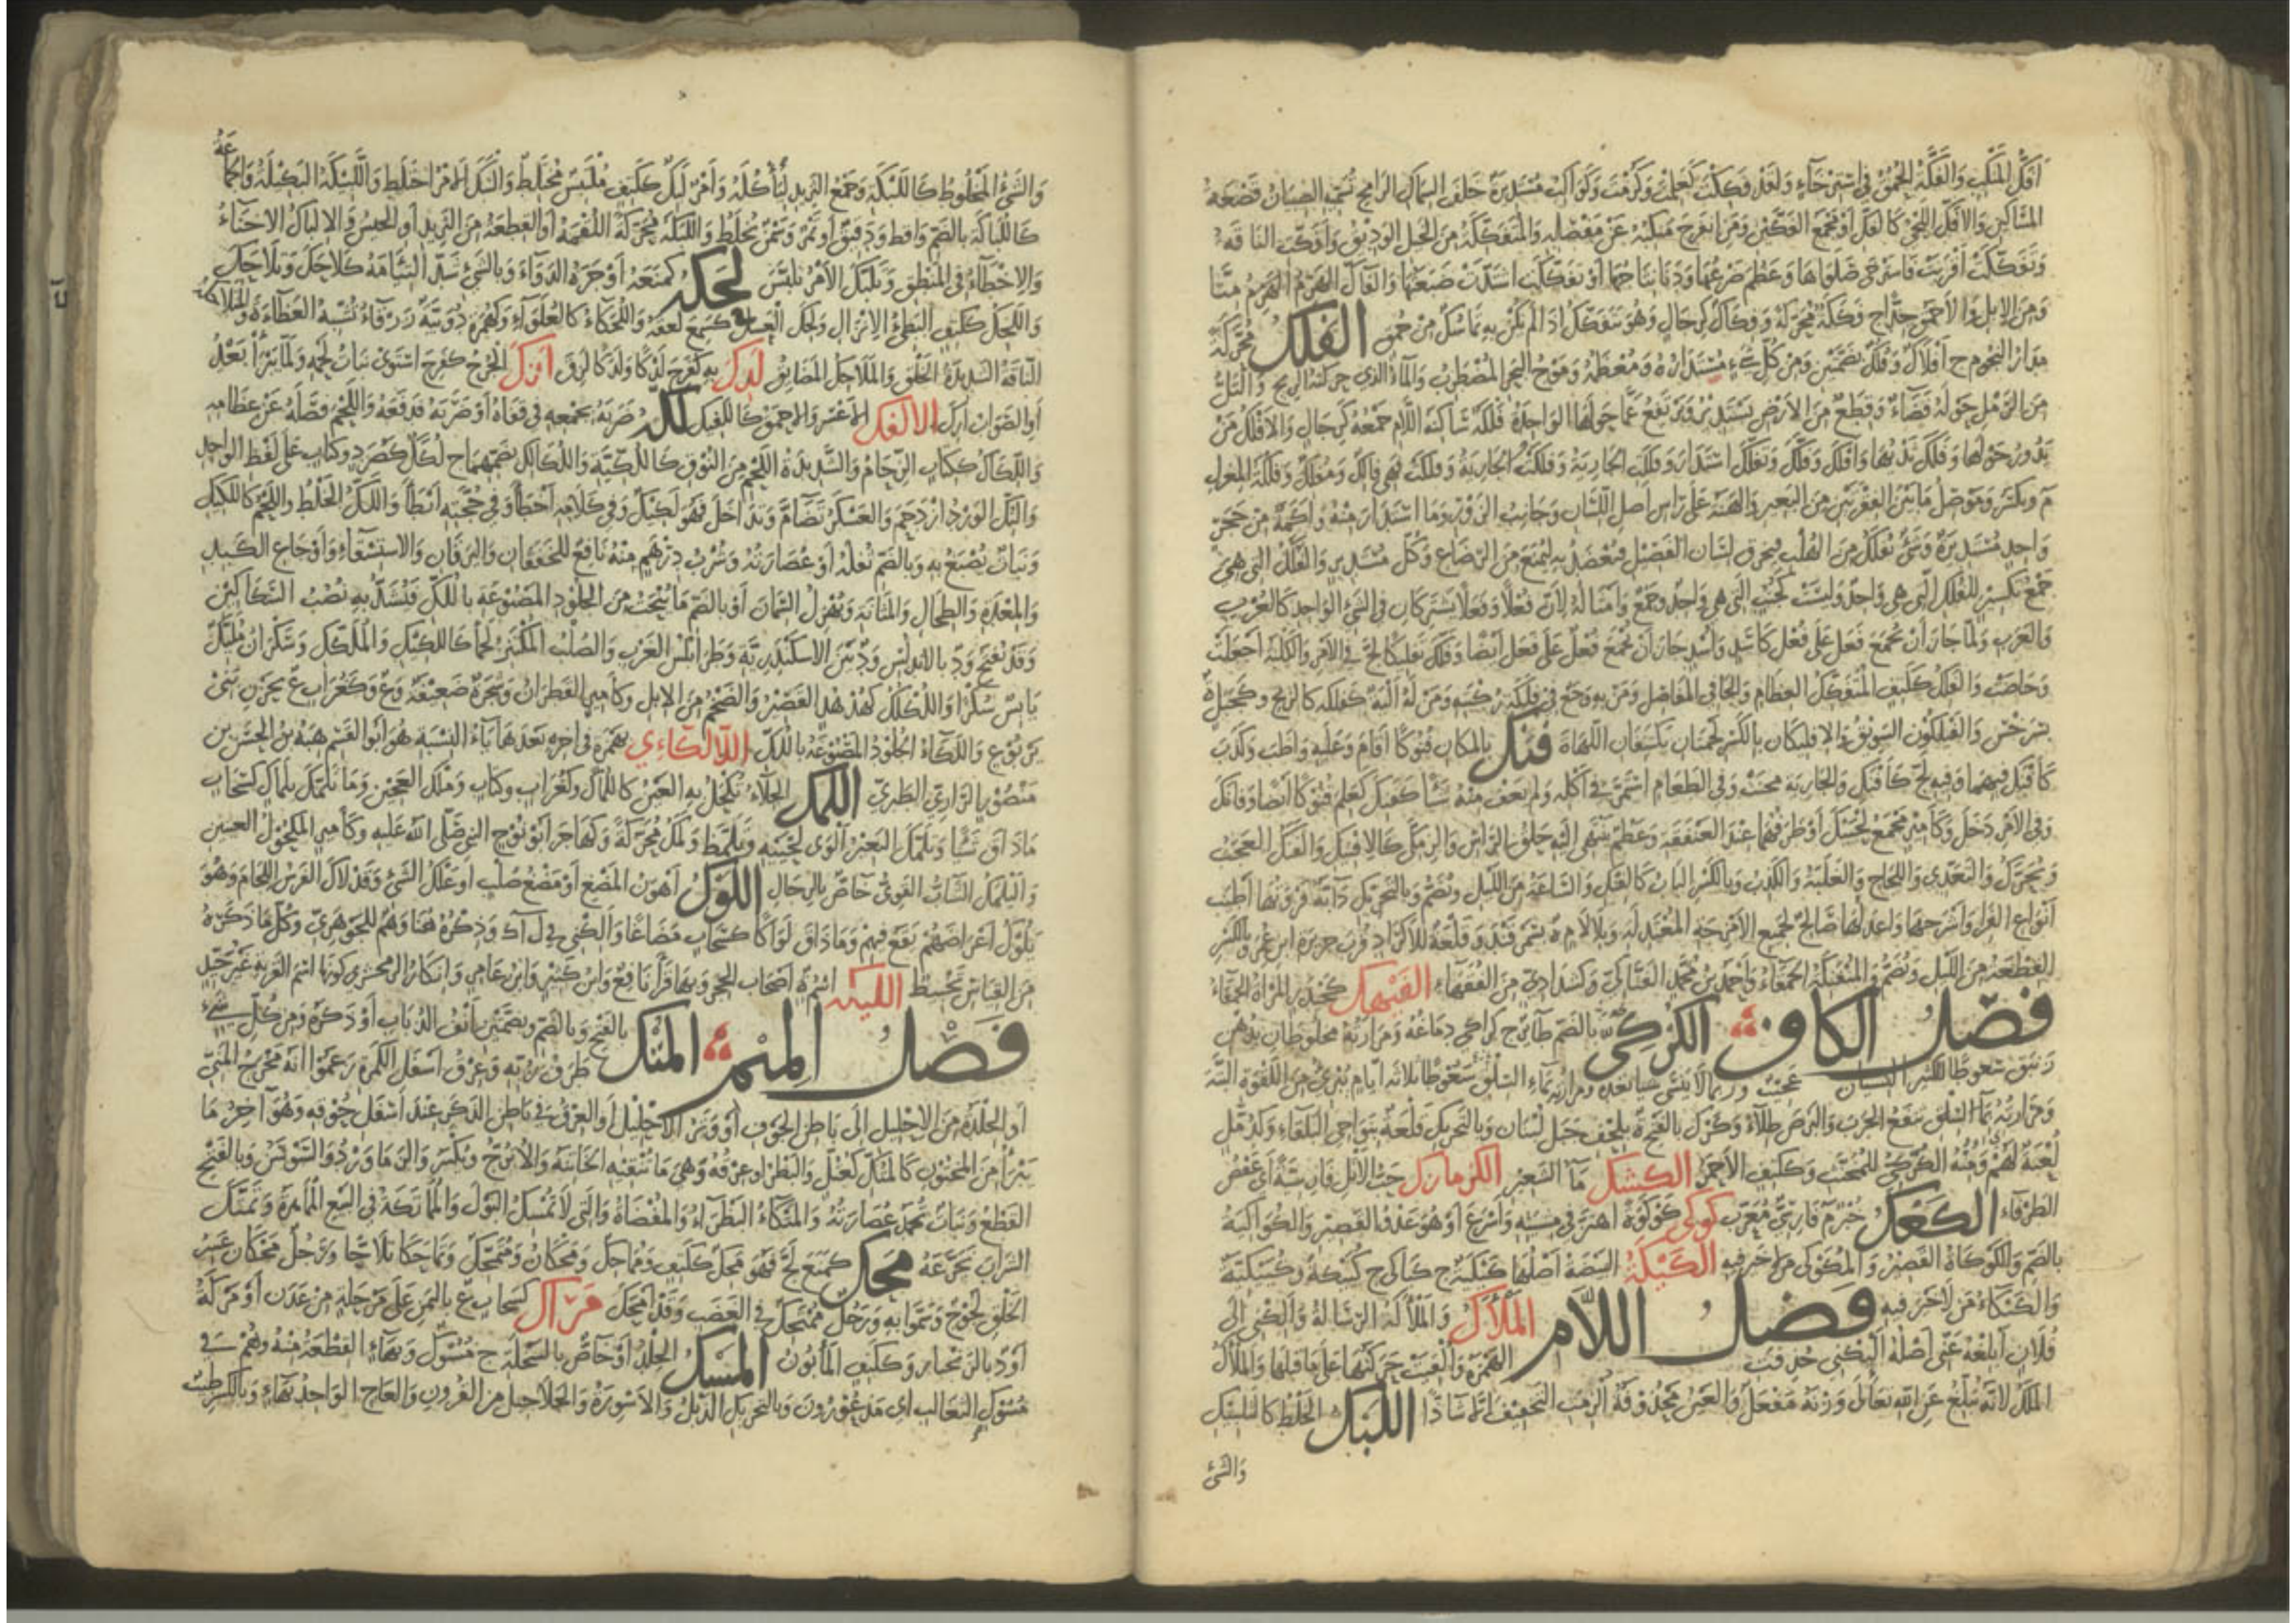 أفك المنكب والفكة الحمق في استرخاء ولقد فككت كعلمت وكرمت وكواكب مستديرة خلف السماك الرامح تسميه الصبيان قصعة
المساكين والأفك اللحي كالفك أو مجمع الفكين ومن انفرج منكبه عن مفصله والمتفككة من الخيل الوديق وأفكت الناقة
وتفككت أقربت فاسترخى صلواها وعظم ضرعها ودنا نتاجها أو تفككت اشتدت ضبعتها والفاك الهرم منا
ومن الإبل والأحمق جدا ج فككة محركة وفكاك كرجال وهو يتفكك إذا لم يكن به تماسك من حمق الفلك محركة
مدار النجوم ج أفلاك وفلك بضمتين ومن كل شيء مستداره ومعظمه وموج البحر المضطرب والماء الذي حركته الريح والتل
من الرمل حوله فضاء وقطع من الأرض تستدير وترتفع عما حولها الواحدة فلكة ساكنة اللام جمعه كرجال والأفلك من
يدور حولها وفلك ثديها وأفلك وفلك وتفلك استدار وفلك الجارية وفلكت الجارية وفلكت فهي فالك ومفلك وفلكة المغزل
م ويكسر وموصل ما بين الفقرتين من البعير والهنة على رأس أصل اللسان وجانب الزور وما استدار منه وأكمة من حجر
واحد مستديرة وشيء يفلك من الهلب فيخرق لسان الفصيل فيعضد به ليمنع من الرضاع وكل مستدير والفلك التي هي
جمع تكسير للفلك التي هي واحد وليست كجنب التي هي واحد وجمع وأمثاله لأن فعلا وفعلا يشتركان في الشيء الواحد كالعرب
والعرب ولما جاز أن يجمع فعل على فعل كأسد وأسد جاز أن يجمع فعل على فعل أيضا وفلك تفليكا لج في الأمر والكلبة أجعلت
وحاضت والفلك ككتف المتفكك العظام والجافي المفاصل ومن به وجع في فلكة ركبته ومن له ألية كفلكة كالزنج وكجبل ة
بسرخس والفيلكون الشوبق والإفليكان بالكسر لحمتان يكتنفان اللهاة فنك بالمكان فنوكا أقام وعليه واظب وكذب
كأفنك فيهما وفيه لج كأفنك والجارية مجنت وفي الطعام استمر في أكله ولم يعف منه شيئا كفنك كعلم فنوكا أيضا وفانك
وفي الأمر دخل وكأمير مجمع لحييك أو طرفهما عند العنفقة وعظم ينتهي إليه حلق الرأس والزمكى كالإفنيك والفنك العجب
ويحرك والتعدي واللجاج والغلبة والكذب وبالكسر الباب كالفنك والساعة من الليل ويضم وبالتحريك دابة فروتها أطيب
أنواع الفراء وأشرفها وأعدلها صالح لجميع الأمزجة المعتدلة وبلا لام ة بسمرقند وقلعة للأكراد قرب جزيرة ابن عمر وبالكسر
القطعة من الليل ويضم والمتفنكة الحمقاء وأحمد بن محمد الفناكي وكشدادي من الفقهاء الفيهك كحيدر المرأة الحمقاء
فصل الكاف الكركي بالضم طائر ج كراكي دماغه ومرارته مخلوطان بدهن
زنبق سعوطا لكثير النسيان عجيب وربما لا ينسى شيئا بعده ومرارته بماء السلق سعوطا ثلاثة أيام تبرئ من اللقوة البتة
ومرارته بماء السلق ينفع الجرب والبرص طلاء وكرك بالفتح ة بلحف جبل لبنان وبالتحريك قلعة بنواحي البلقاء وكدمل
لعبة لهم ومنه الكركي للمخنث وككتف الأحمر الكشك ماء الشعير الكزمازك حب الأثل فارسية أي عفص
الطرفاء الكعك خبز م فارسي معرب كوكى كوكوة اهتز في مشيه وأسرع أو هو عدو القصير والكواكية
بالضم والكوكاة القصير والمكوكى من لا خير فيه الكيكة البيضة أصلها كيكية ج كياكي ج كييكة وكييكية
والكيكاء من لا خير فيه فصل اللام الملأك والملأكة الرسالة وألكني إلى
فلان أبلغه عني أصله ألئكني حذفت الهمزة وألقيت حركتها على ما قبلها والملأك
الملك لأنه يبلغ عن الله تعالى وزنه مفعل والعين محذوفة ألزمت التخفيف إلا شاذا اللبك الخلط كالتلبيك
والشيء
والشيء المخلوط كاللبكة وجمع الثريد ليأكله وأمر لبك ككتف ملتبس مختلط والتبك الأمر اختلط واللبيكة البكيلة والجماعة
كاللباكة بالضم وأقط ودقيق أو تمر وسمن يخلط واللبكة محركة اللقمة أو القطعة من الثريد أو الحيس والإلباك الإخناء
والإخطاء في المنطق وتلبك الأمر تلبس لحكه كمنعه أوجره الدواء وبالشيء شد التئامه كلاحك وتلاحك
واللحك ككتف البطيء الإنزال ولحك العسل كسمع لعقه واللحكاء كالغلواء وكهمزة دويبة زرقاء تشبه العظاءة والملاحكة
الناقة الشديدة الخلق والملاحك المضايق لدك به كفرح لدكا ولدكا لزق لزك الجرح كفرح استوى نبات لحمه ولما يبرأ بعد
أو الصواب أرك الألفك الأعسر والأحمق كاللفيك لكه ضربه بجمعه في قفاه أو ضربه فدفعه واللحم فصله عن عظامه
واللكاك ككتاب الزحام والشديدة اللحم من النوق كاللكية واللكالك بضمهما ج لكك كصرد وكتاب على لفظ الواحد
والتك الورد ازدحم والعسكر تضام وتداخل فهو لكيك وفي كلامه أخطأ وفي حجته أبطأ واللك الخلط واللحم كاللكيك
ونبات يصبغ به وبالضم ثفله أو عصارته وشرب درهم منه نافع للخفقان واليرقان والاستسقاء وأوجاع الكبد
والمعدة والطحال والمثانة ويهزل السمان أو بالضم ما ينحت من الجلود المصبوغة باللك فتشد به نصب السكاكين
وقد يفتح ود بالأندلس ود بين الإسكندرية وطرابلس الغرب والصلب المكتنز لحما كاللكيك والملكك وسكران ملتك
يابس سكرا واللكلك كهدهد القصير والضخم من الإبل وكأمير القطران وشجرة ضعيفة وع وكغراب ع بحزن بني
يربوع واللكاء الجلود المصبوغة باللك اللالكاءي بهمزة في آخره بعدها ياء النسبة هو أبو القسم هبة بن الحسن بن
منصور الرازي الطبري اللمك الجلاء يكحل به العين كاللماك كغراب وكتاب وملك العجين وما تلمك بلماك كسحاب
ما ذاق شيئا وتلمك البعير لوى لحييه وتلمظ ولمك محركة وكهاجر أبو نوح النبي صلى الله عليه وكأمير المكحول العينين
واليلمك الشاب القوي خاص بالرجال اللوك أهون المضغ أو مضغ صلب أو علك الشيء وقد لاك الفرس اللجام وهو
يلوك أعراضهم يقع فيهم وما ذاق لواكا كسحاب مضاغا وألكني في ل أ ك وذكره هنا وهم للجوهري وكل ما ذكره
من القياس تخبيط الليكة اسم ة أصحاب الحجر وبها قرأ نافع وابن كثير وابن عامر وإنكار الزمخشري كونها اسم القرية غير جيد
فصل الميم المتك بالفتح وبالضم وبضمتين أنف الذباب أو ذكره ومن كل شيء
طرف زبه وعرق أسفل الكمرة زعموا أنه مخرج المني
أو الجلدة من الإحليل إلى باطن الحوق أو وترة الإحليل أو العرق في باطن الذكر عند أسفل حوقه وهو آخر ما
يبرأ من المختون كالمتك كعتل والبظر أو عرقه وهي ما تبقيه الخاتنة والأترج ويكسر والزماورد والسوسن وبالفتح
القطع ونبات تجمد عصارته والمتكاء البظراء والمفضاة والتي لا تمسك البول والمماتكة في البيع المماهرة وتمتك
الشراب تجرعه محك كمنع لج فهو محك ككتف ومماحك ومحكان ومتمحك وتماحكا تلاجا ورجل محكان عسر
الخلق لجوج وسموا به ورجل ممتحك في الغضب وقد أمحك مراك كسحاب ع باليمن على مرحلة من عدن أو مركة
أو د بالزنجبار وككتف المأبون المسك الجلد أو خاص بالسخلة ج مسوك وبهاء القطعة منه وهم في
مسوك الثعالب أي مذعورون وبالتحريك الذبل والأسورة والخلاخيل من القرون والعاج الواحد بهاء وبالكسر طيب